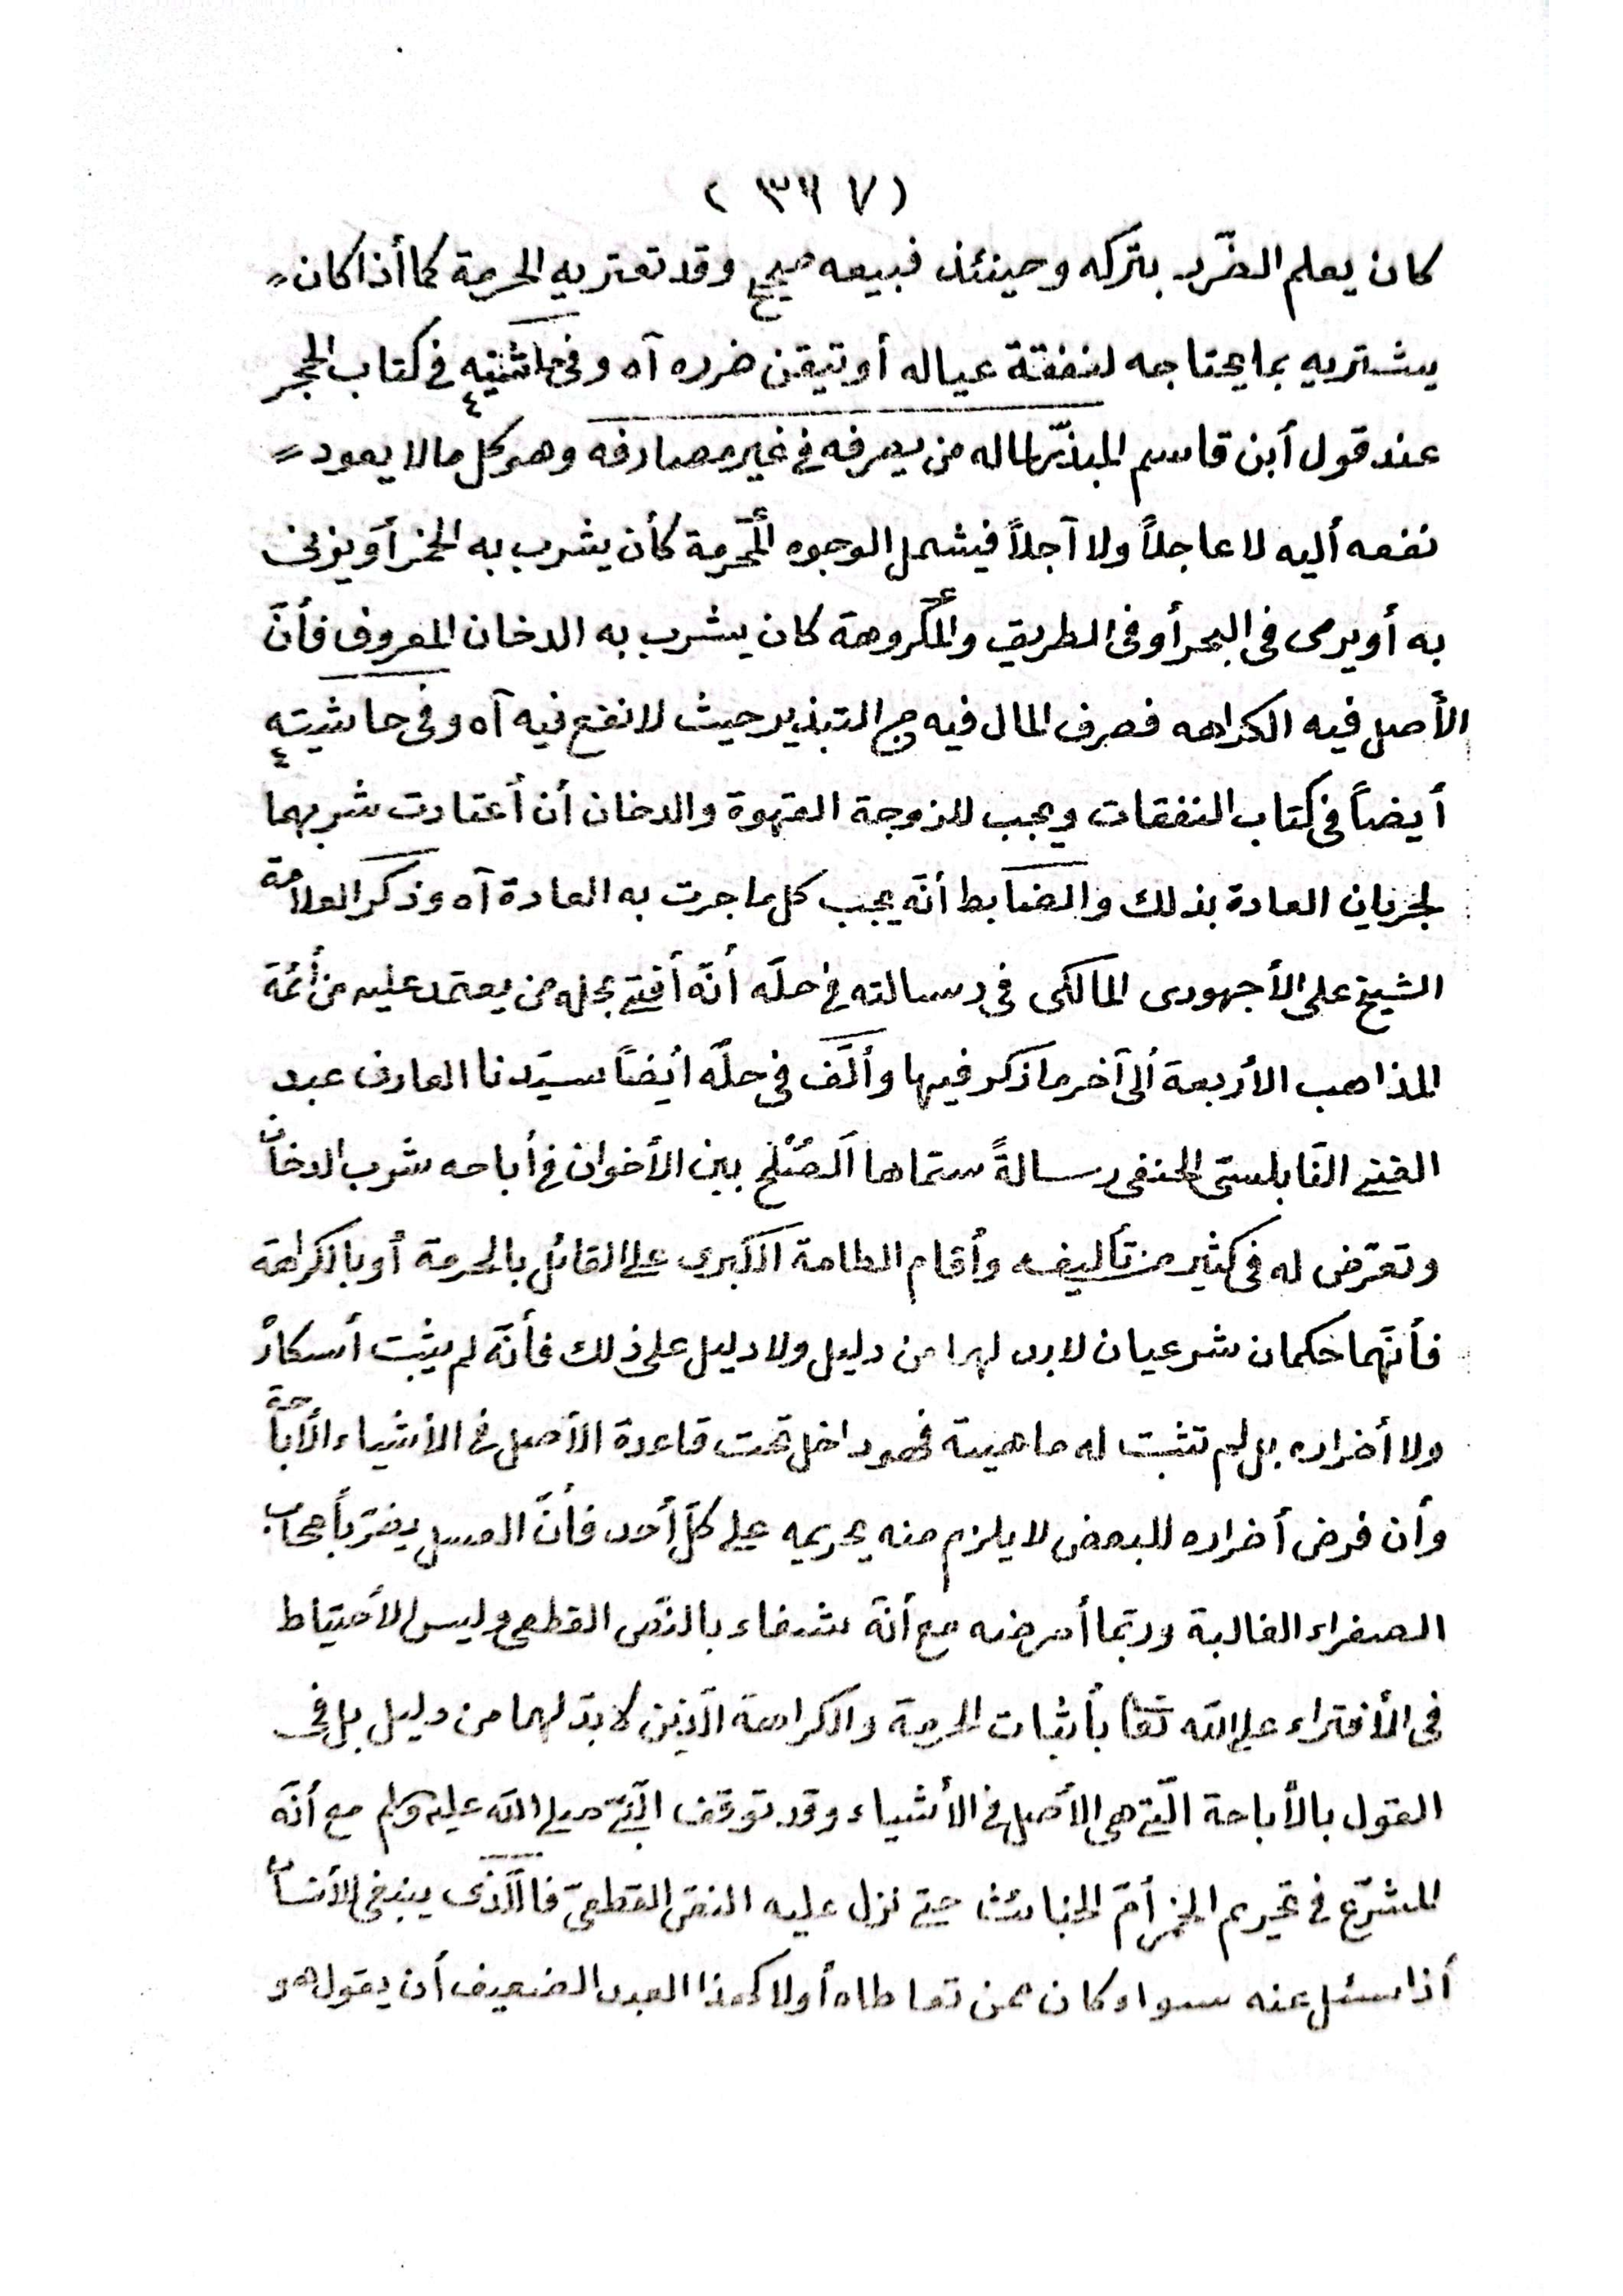 ( ٣٦٧ )
كان يعلم الضّرر بتركه وحينئذ فبيعه صحيح وقد تعتريه الحرمة كما أذا كان
يشتريه بما يحتاجه لنفقة عياله أو تيقن ضرره آه وفى حاشيته فى كتاب الحجر
عند قول أبن قاسم المبذّر لماله من يصرفه فى غير مصارفه وهو كل ما لا يعود
نفعه أليه لا عاجلاً ولا آجلاً فيشمل الوجوه ألمحّرمة كأن يشرب به الخمر أو يزنى
به أو يرمى فى البحر أو فى الطريق وألمكروهة كان يشرب به الدخان المعروف فأنّ
الأصل فيه الكراهه فصرف المال فيه من التبذير حيث لا نفع فيه آه وفى حاشيته
أيضاً فى كتاب النفقات ويجب للزوجة القهوة والدخان أن أعتادت شربهما
لجريان العادة بذلك والضابط أنّه يجب كل ما جرت به العادة آه وذكر العلامة
الشيخ على الأجهورى المالكى فى رسالته فى حلّه أنّه أفتى بحله من يعتمد عليه من أئمة
المذاهب الأربعة ألى آخر ما ذكر فيها وألّف فى حلّه أيضاً سيّدنا العارف عبد
الغنى النّابلسىّ الحنفى رسالةً سمّاها الصّلح بين الأخوان فى أباحه شرب الدخان
وتعرّض له فى كثير من تأليفه وأقام الطامة الكبرى على القائل بالحرمة أو بالكراهة
فأنّهما حكمان شرعيان لابد لهما من دليل ولا دليل على ذلك فأنّه لم يثبت أسكاره
ولا أضراره بل لم تثبت له ماهية فهو داخل تحت قاعدة الأصل فى الأشياء الأباحة
وأن فرض أضراره للبعض لا يلزم منه تحريمه على كلّ أحد فأنّ العسل يضرّ بأصحاب
الصفراء الغالبة وربّما أمرضه مع أنّه شفاء بالنّص القطعى وليس الأحتياط
فى الأفتراء على اللّه تعا بأثبات الحرمة والكراهة الّذين لابدّ لهما من دليل بل فى
القول بالأباحة الّتى هى الأصل فى الأشياء وقد توقف النّبىّ صلى اللّه عليه وسلم مع أنّه
المشرّع فى تحريم الخمر أمّ الخبائث حتى نزل عليه النصّ القطعىّ فالّذى ينبغى للأنسان
أذا سئل عنه سواء كان ممن تعاطاه أو لا كهذا العبد الضعيف أن يقول هو